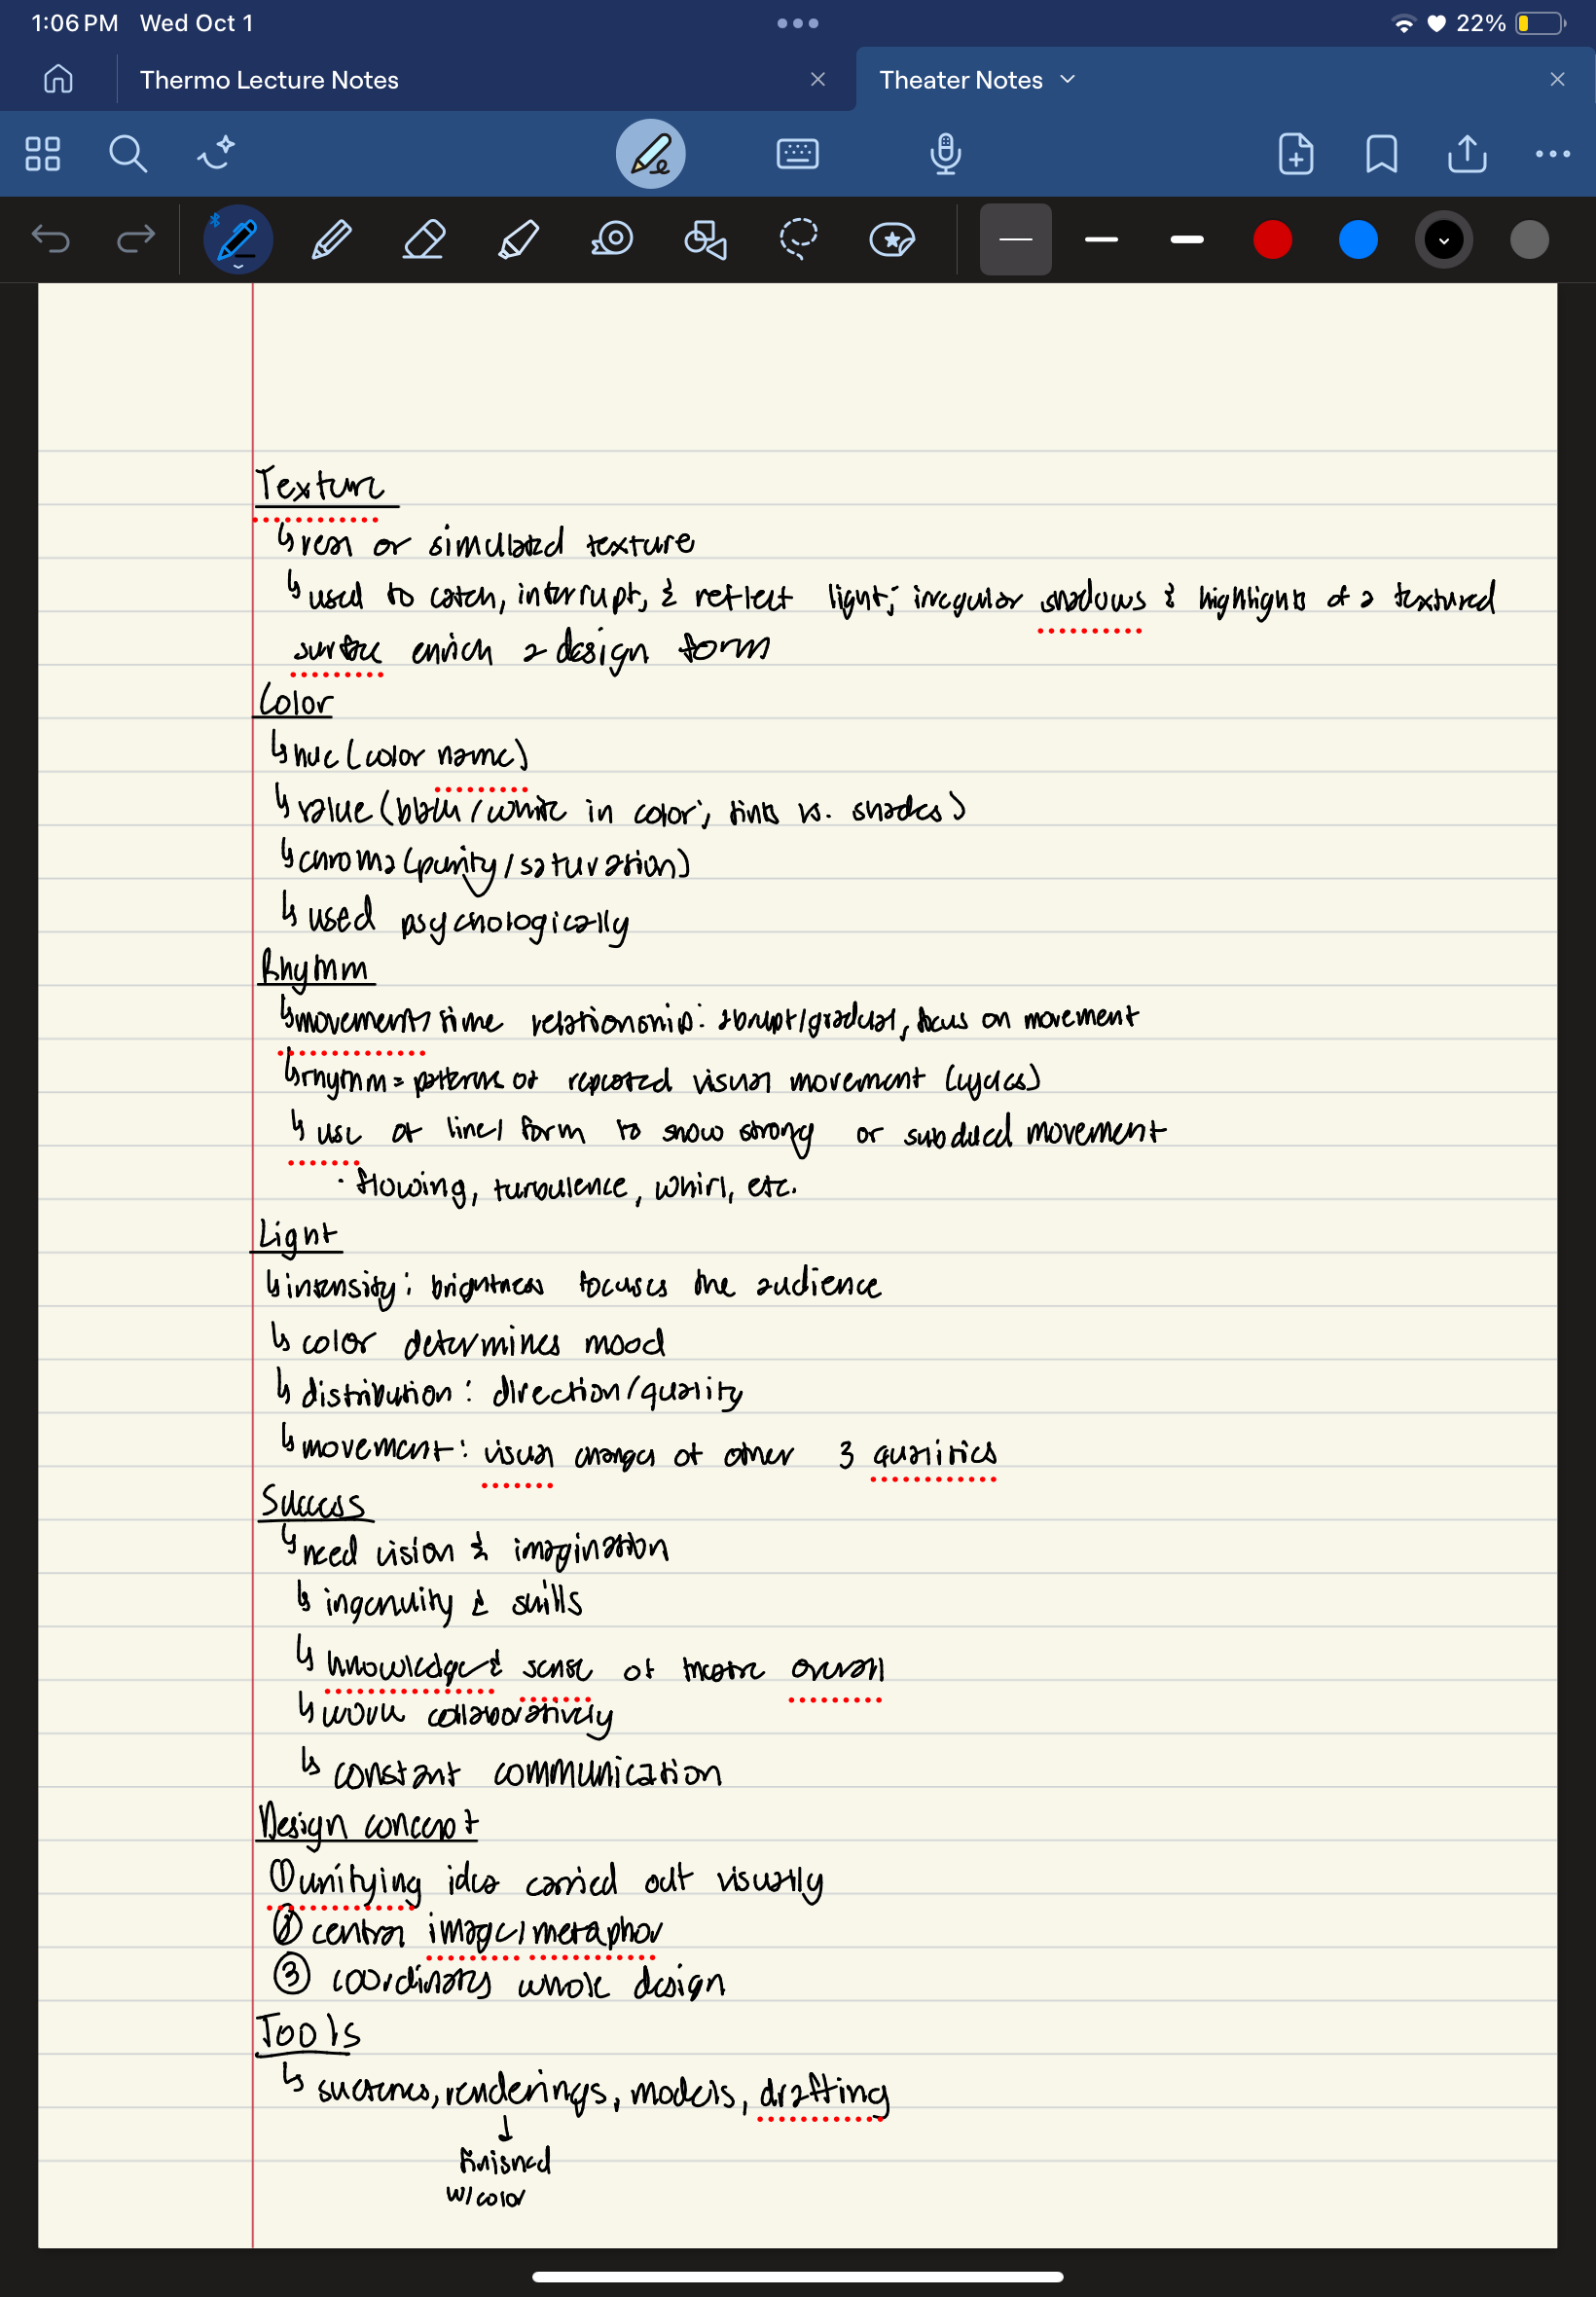 1:06 PM Wed Oct 1 22%
Thermo Lecture Notes Theater Notes
Texture
↳ real or simulated texture
↳ used to catch, interrupt, & reflect light; irregular shadows & highlights of a textured
surface enrich a design form
Color
↳ hue (color name)
↳ value (black/white in color; tints vs. shades)
↳ chroma (purity/saturation)
↳ used psychologically
Rhythm
↳ movement/time relationship: abrupt/gradual, focus on movement
↳ rhythm = patterns of repeated visual movement (cycles)
↳ use of line/form to show strong or subdued movement
· flowing, turbulence, whirl, etc.
Light
↳ intensity: brightness focuses the audience
↳ color determines mood
↳ distribution: direction/quality
↳ movement: visual changes of other 3 qualities
Success
↳ need vision & imagination
↳ ingenuity & skills
↳ knowledge & sense of theatre overall
↳ work collaboratively
↳ constant communication
Design concept
① unifying idea carried out visually
② central image/metaphor
③ coordinates whole design
Tools
↳ sketches, renderings, models, drafting
↓
finished
w/ color